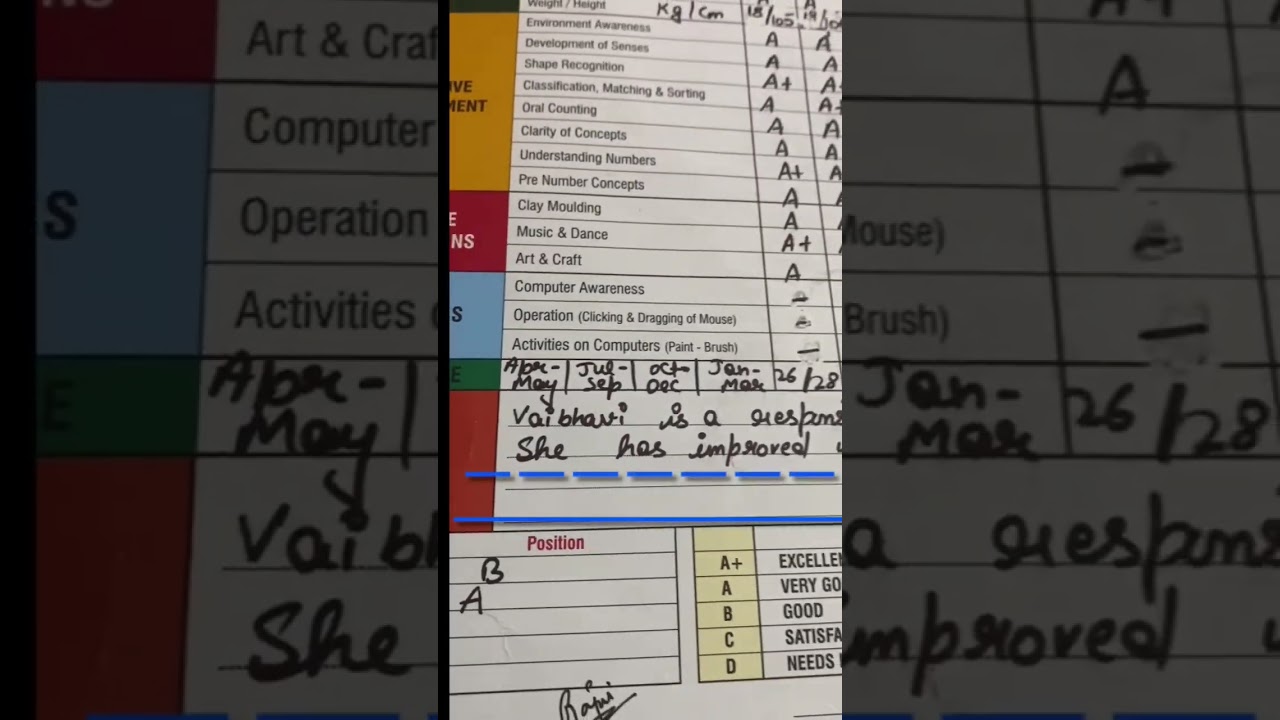 Weight / Height Kg/cm 18/105 19/10
Environment Awareness A A
Development of Senses A A
Shape Recognition A+ A
Classification, Matching & Sorting A A+
Oral Counting A A
Clarity of Concepts A A
Understanding Numbers A+ A
Pre Number Concepts A
Clay Moulding A
Music & Dance A+
Art & Craft A
Computer Awareness -
Operation (Clicking & Dragging of Mouse)
Activities on Computers (Paint - Brush) -
Apr-May | Jul-Sep | Oct-Dec | Jan-Mar 26/28
Vaibhavi is a respons
She has improved
Position
B
A
A+ EXCELLEN
A VERY GO
B GOOD
C SATISFA
D NEEDS